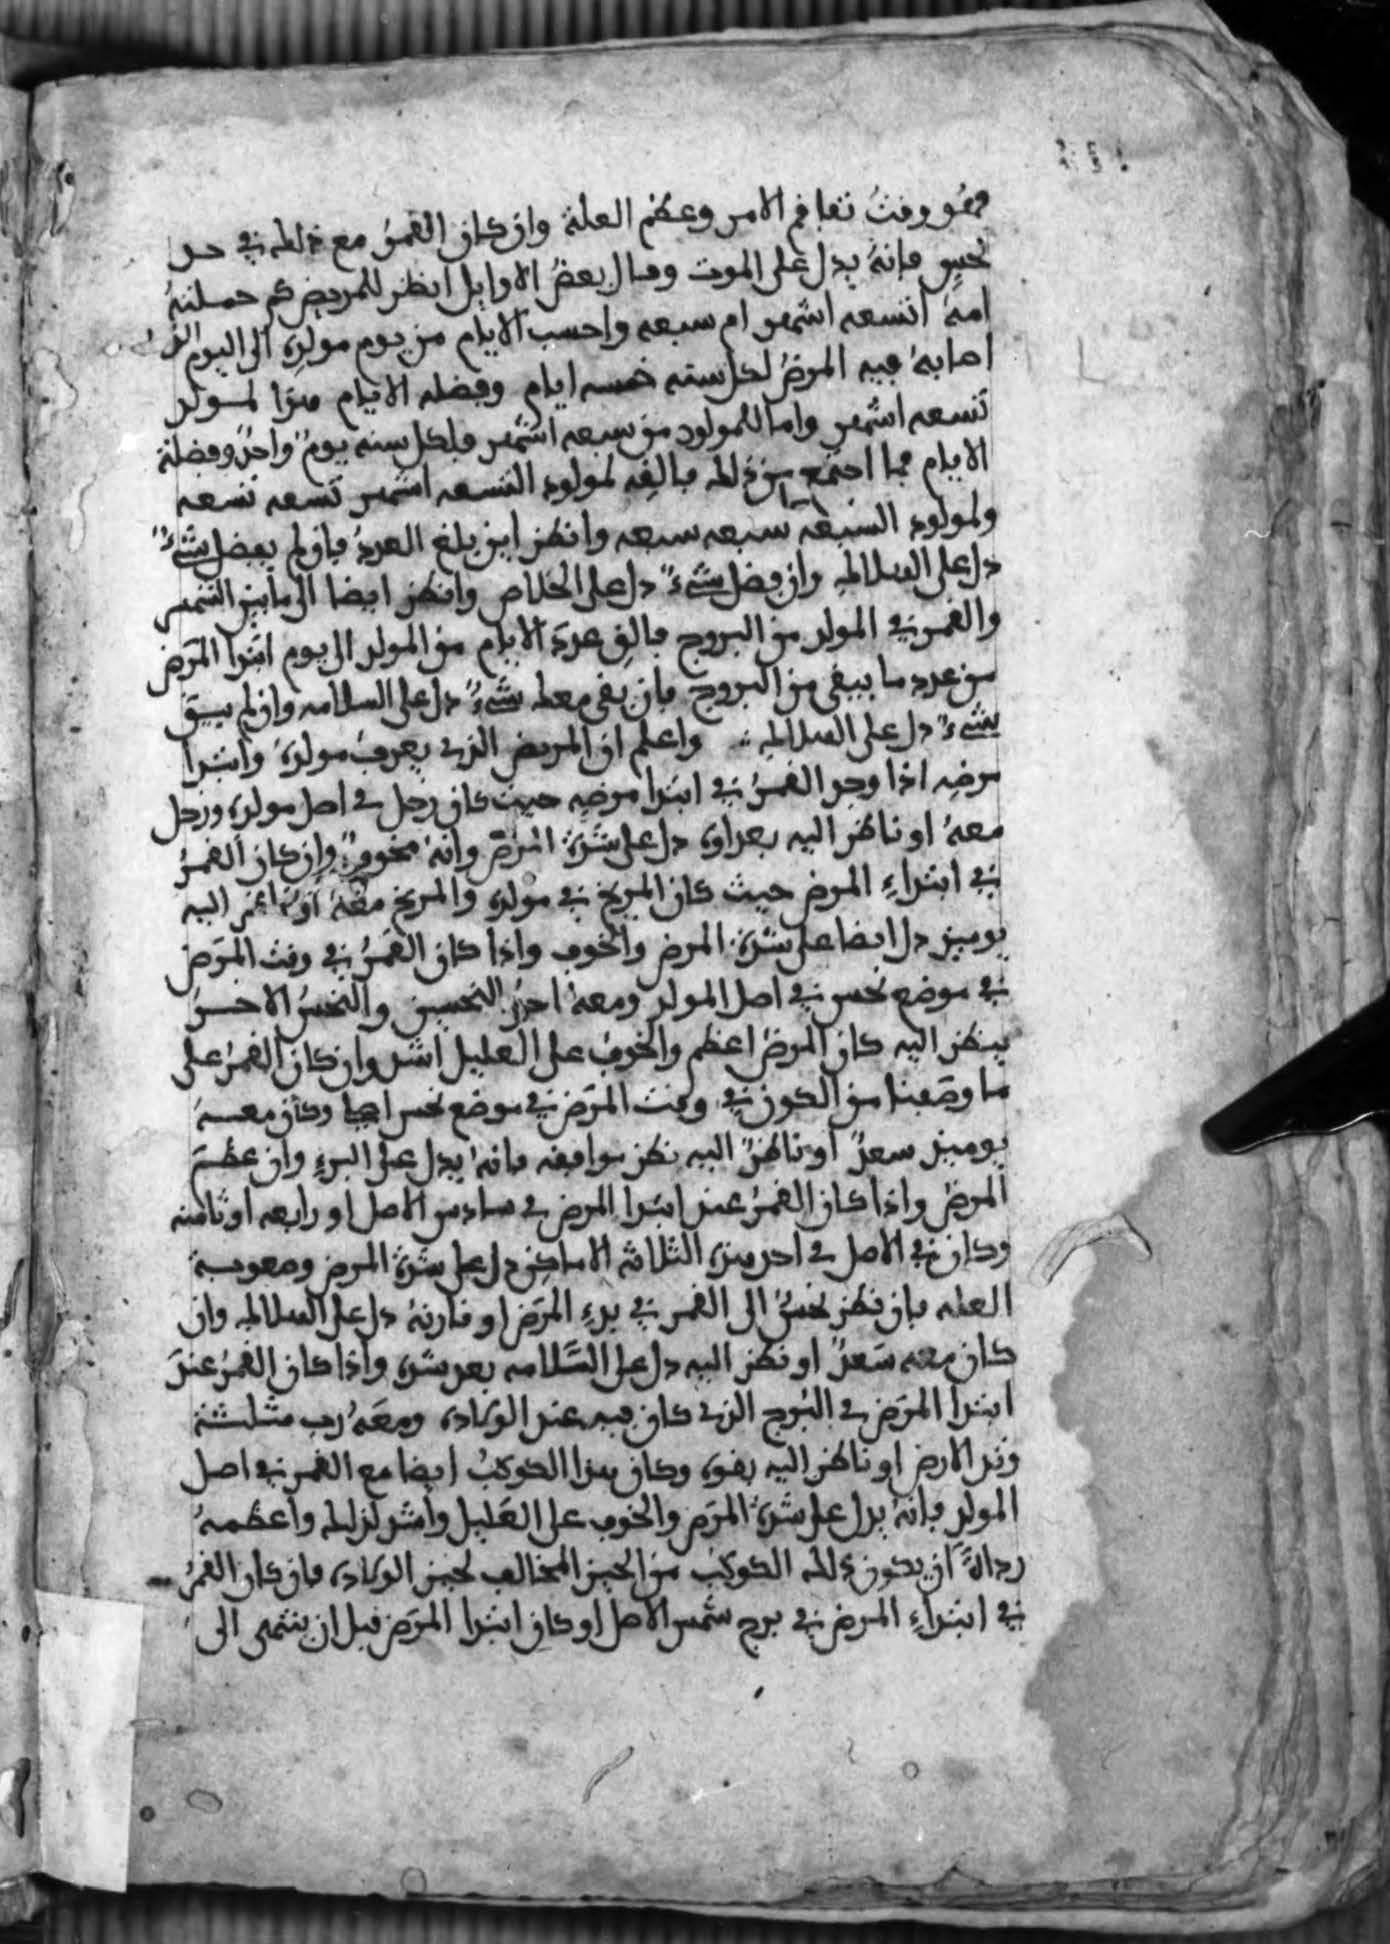 فهو وقت تفاقم الامر وعظم العلة وان كان القمرُ مع ذلك في حد
نحس فإنهُ يدل على الموت وقال بعض الاوايل انظر للمريض كم حملتهُ
امهُ اتسعه اشهر ام سبعه واحسب الايام من يوم مولده الى اليوم الذي
اصابهُ فيه المرض لكل سنه خمسه ايام وفضله الايام هذا لمولد
تسعه اشهر واما للمولود من سبعه اشهر فلكل سنه يومٌ واحدٌ وفضلة
الايام فما اجتمع من ذلك فالقه لمولود التسعه اشهر تسعه تسعه
ولمولود السبعه سبعه سبعه وانظر اين بلغ العددُ فان لم يفضل شيءٌ
دل على الهلاك وان فضل شيءٌ دل على الخلاص وانظر ايضا الى ما بين الشمس
والقمر في المولد من البروج فالق عدد الايام من المولد الى يوم ابتدا المرض
من عدد ما يبقى من البروج فان بقى معك شيءٌ دل على السلامه وان لم يبق
شيءٌ دل على الهلاك واعلم ان المريض الذي يعرف مولده وابتدا
مرضه اذا وجد القمرُ في ابتدا مرضه حيث كان زحل في اصل مولده وزحل
معهُ او ناظر اليه بعداوة دل على شدة المرض وانه مخوفٌ وان كان القمرُ
في ابتداءِ المرض حيث كان المريخ في مولده والمريخ معهُ او ناظر اليه
يوميذ دل ايضا على شدة المرض والخوف واذا كان القمرُ في وقت المرض
في موضع نحس في اصل المولد ومعهُ احدُ النحسين والنحسُ الاخر
ينظر اليه كان المرضُ اعظم والخوفُ على العليل اشد وان كان القمرُ على
ما وصفنا من الكون في وقت المرض في موضع نحس وكان معه
يوميذ سعدٌ او ناظرٌ اليه نظر موافقه فانهُ يدل على البرءِ وان عظم
المرضُ واذا كان القمرُ عند ابتدا المرض في سادس الاصل او رابعه او ثامنه
وكان في الاصل في احد هذه الثلاثه الاماكن دل على شدة المرض وصعوبه
العله فان نظر نحسٌ الى القمر في بدءِ المرض او قارنهُ دل على الهلاك وان
كان معه سَعدٌ او نظر اليه دل على السَّلامه بعد شده واذا كان القمرُ عند
ابتدا المرض في البُرج الذي كان فيه عند الولاده ومعَهُ رب مثلثة
وتد الارض او ناظر اليه بقوه وكان هذا الكوكبُ ايضا مع القمر في اصل
المولد فانهُ يدل على شدة المرض والخوف على العَليل واشد لذلك واعظمهُ
رداةً ان يكون ذلك الكوكب من الحيز المخالف لحيز الولاده فان كان القمرُ
في ابتداءِ المرض في برج شمس الاصل او كان ابتدا المرض قبل ان ينتهى الى